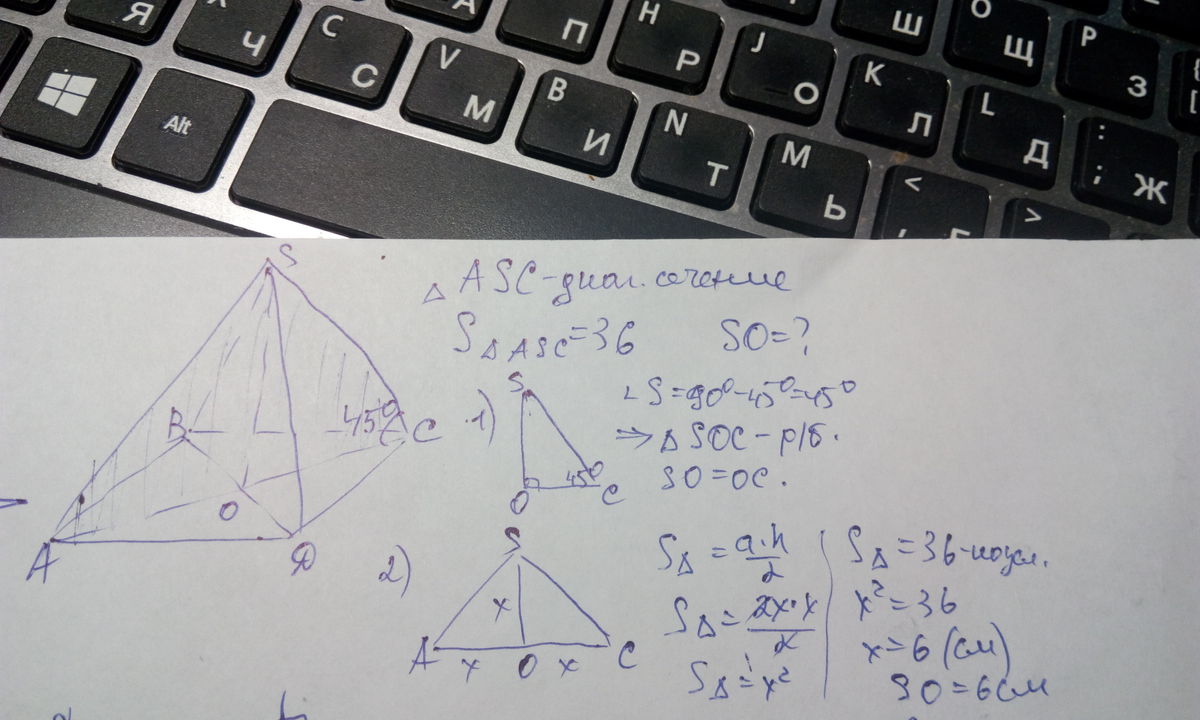 Я Ч С С V М В И N Т М Ь < >
А П Н Р J О К Л L Д : ; Ж
Ш О Щ Р З
Alt
S
B
45°
C
O
A
D
△ ASC - диаг. сечение
S△ASC = 36 SO = ?
1)
S
45°
O
C
∠S = 90° - 45° = 45°
⇒ △ SOC - р/б.
SO = OC.
2)
S
x
A
x
O
x
C
S△ = a·h/2
S△ = 2x·x/2
S△ = x²
S△ = 36 - по усл.
x² = 36
x = 6 (см)
SO = 6 см